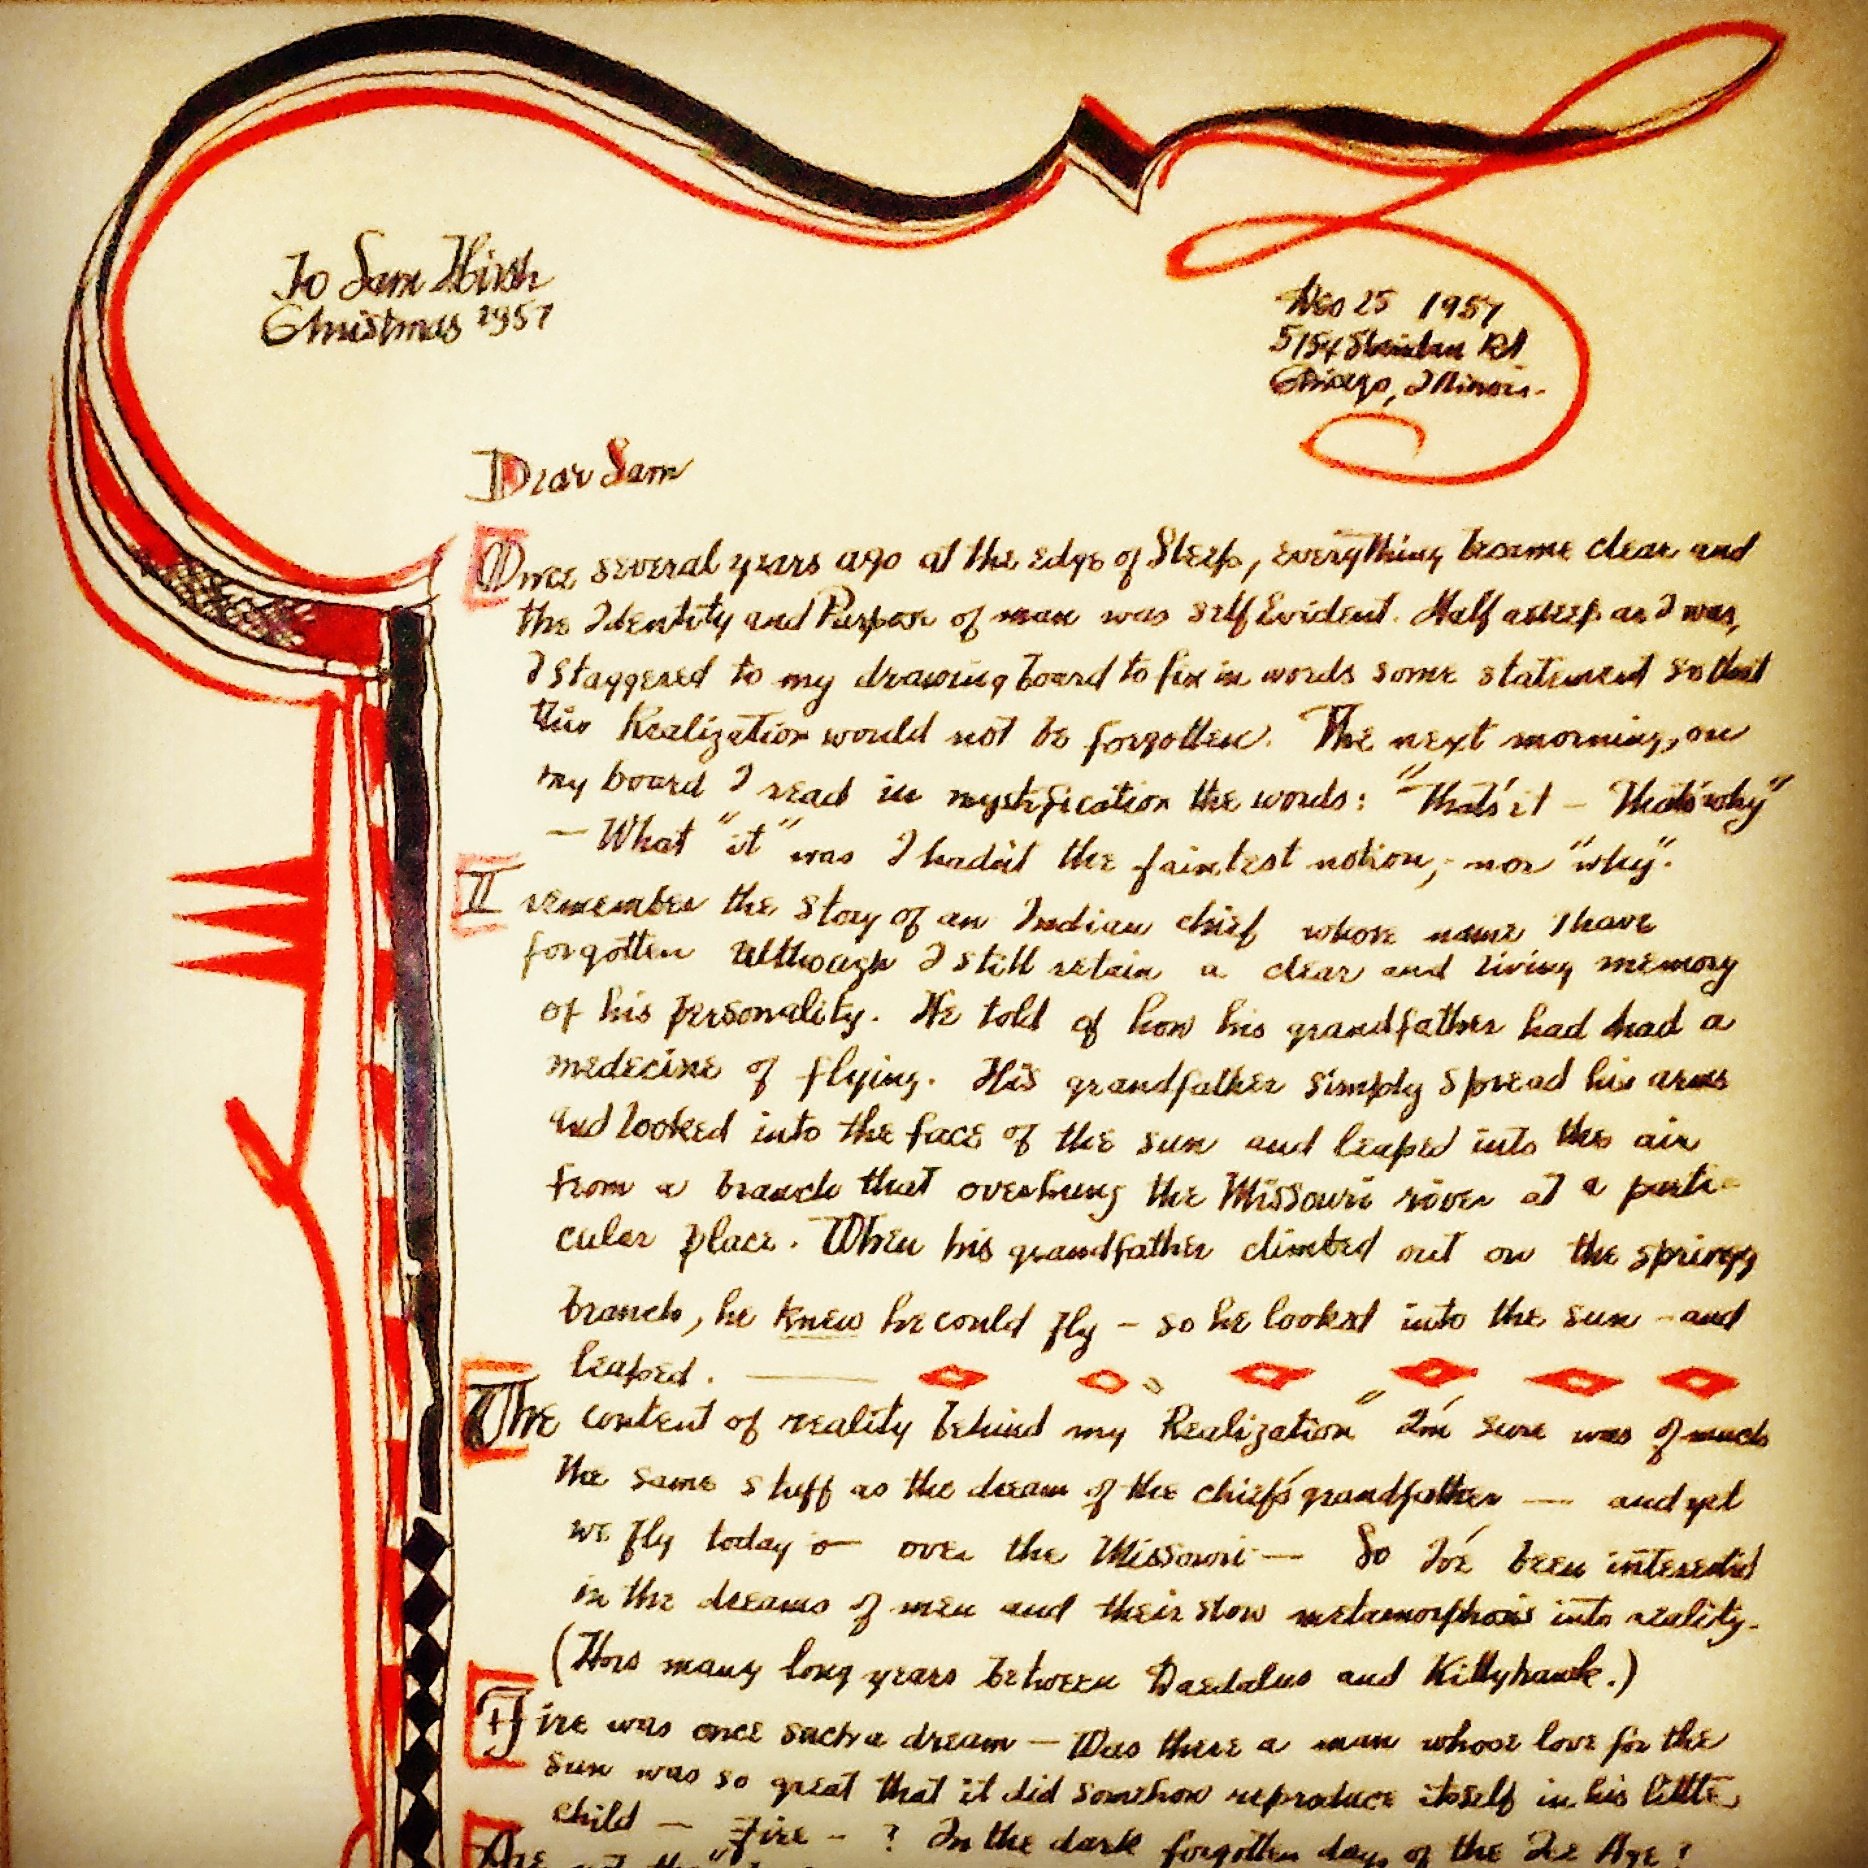 To Sam Hirsh
Christmas 1957
Dec 25 1957
5154 Sheridan Rd
Chicago, Illinois.
Dear Sam
Once several years ago at the edge of Sleep, everything became clear and
the Identity and Purpose of man was self Evident. Half asleep as I was,
I staggered to my drawing board to fix in words some statement so that
this Realization would not be forgotten. The next morning, on
my board I read in mystification the words: "That's it — That's why"
— What "it" was I hadn't the faintest notion, nor "why".
I remember the story of an Indian chief whose name I have
forgotten although I still retain a clear and living memory
of his personality. He told of how his grandfather had had a
medecine of flying. His grandfather simply spread his arms
and looked into the face of the sun and leaped into the air
from a branch that overhung the Missouri river at a parti-
cular place. When his grandfather climbed out on the springy
branch, he knew he could fly — so he looked into the sun — and
leaped.
The content of reality behind my "Realization" I'm sure was of much
the same stuff as the dream of the chief's grandfather — and yet
we fly today — over the Missouri — So I've been interested
in the dreams of men and their slow metamorphosis into reality.
(How many long years between Daedalus and Kittyhawk.)
Fire was once such a dream — Was there a man whose love for the
sun was so great that it did somehow reproduce itself in his little
child — Fire — ? In the dark forgotten days of the Ice Age?
Are not the